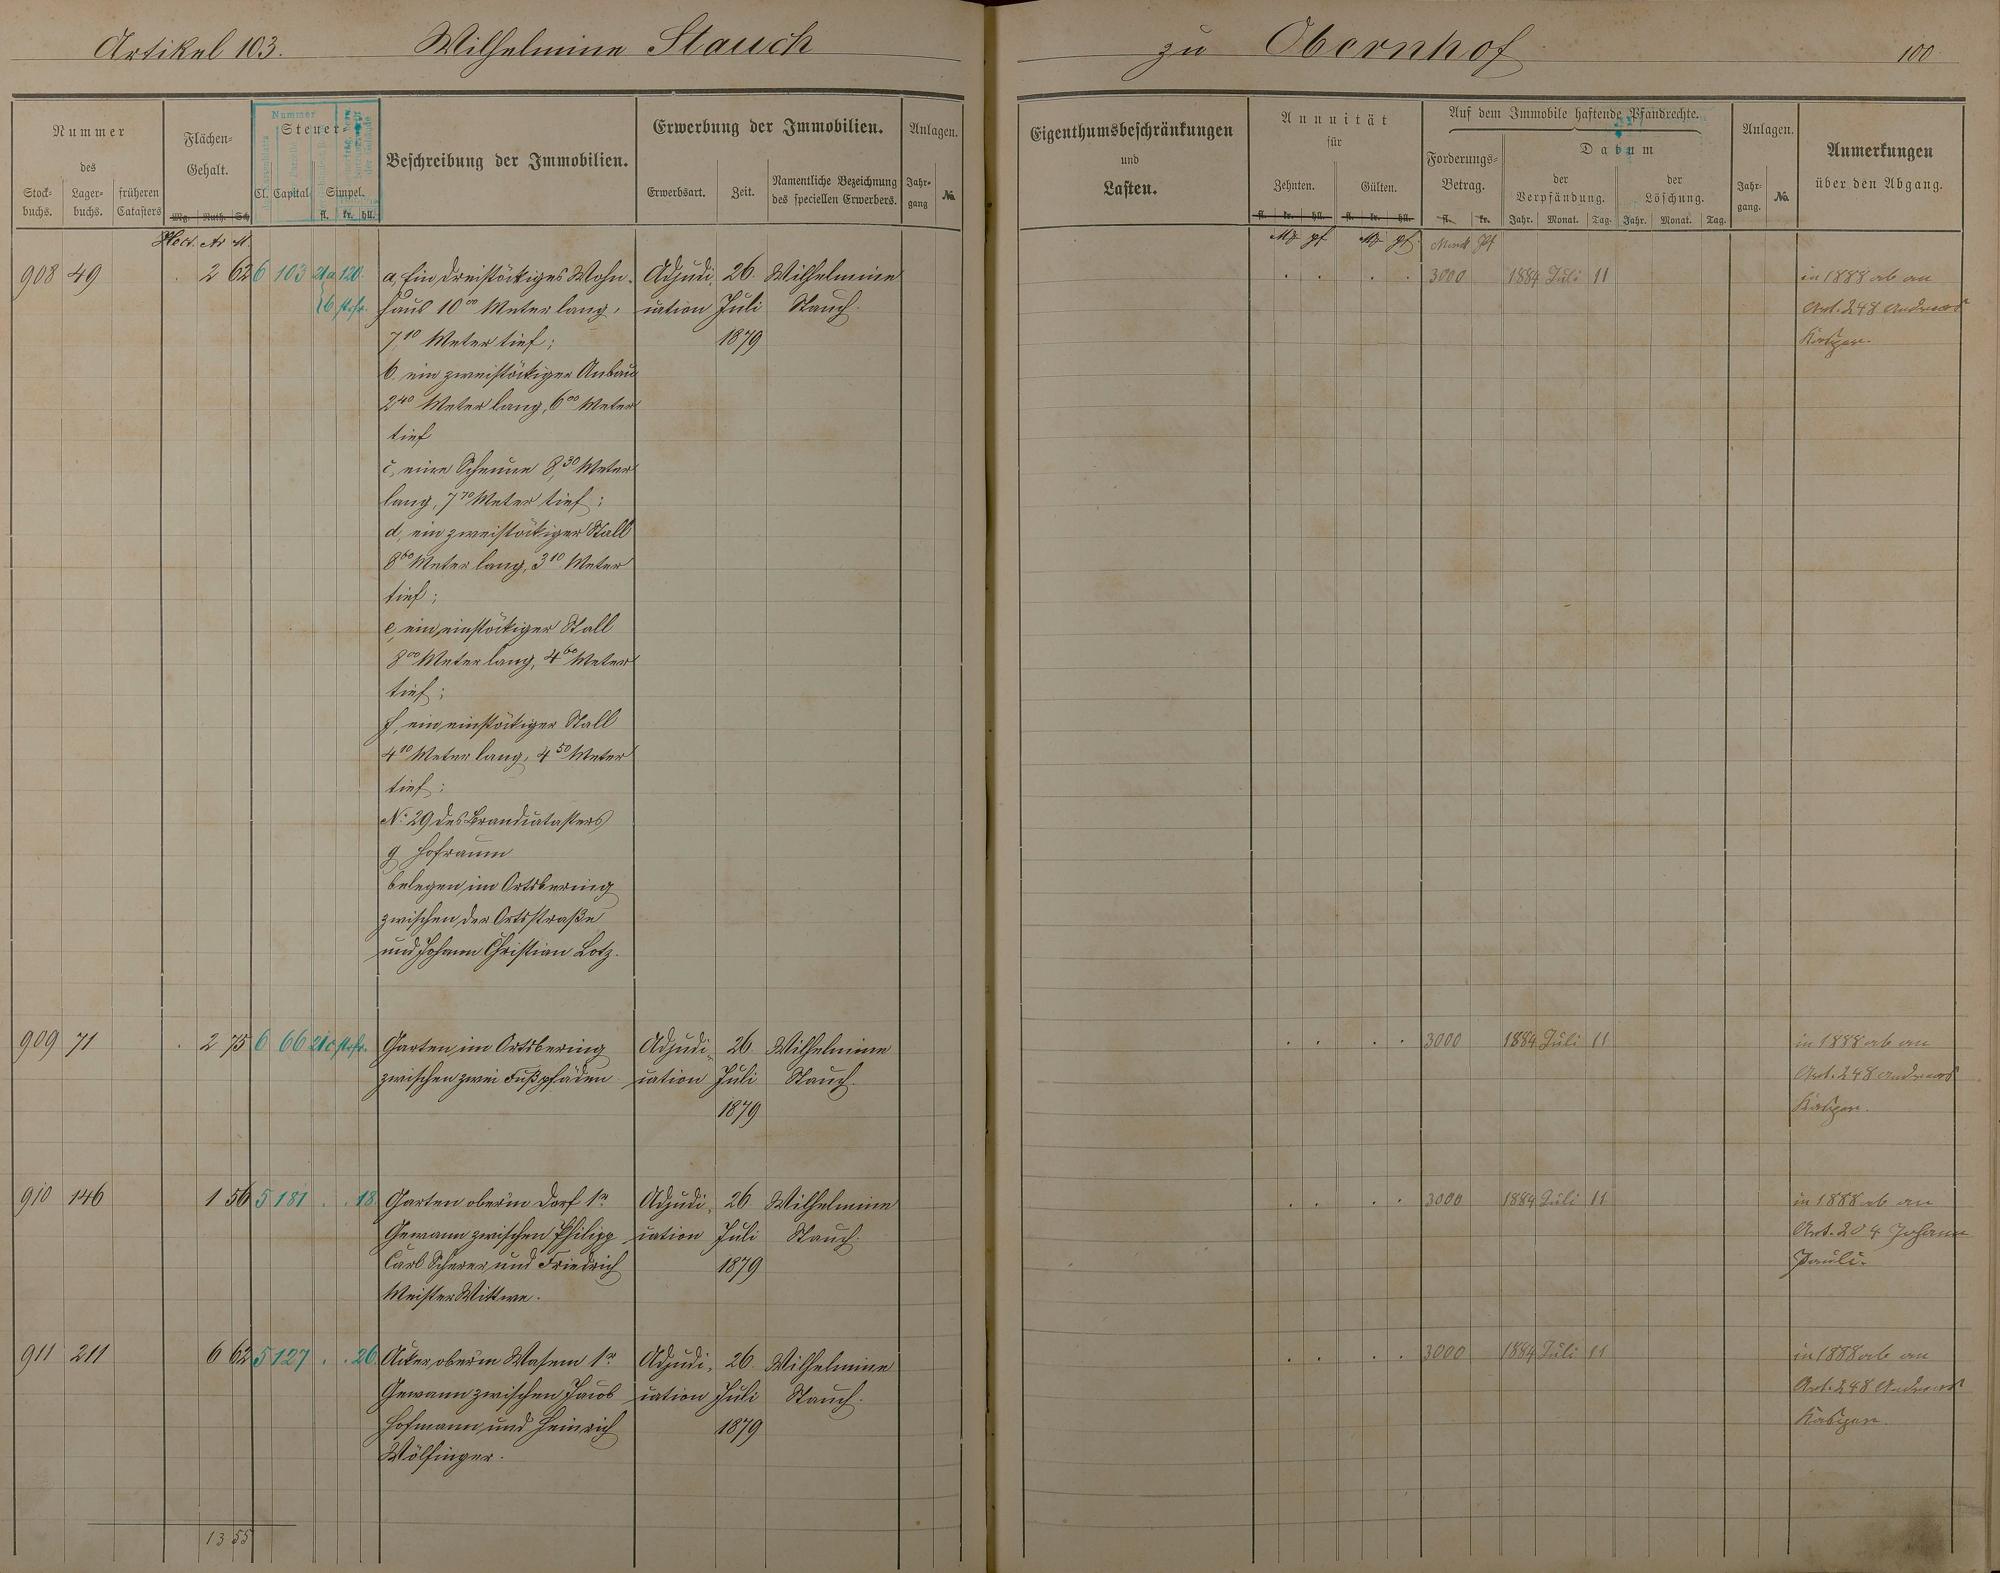 Artikel 103. Wilhelmine Stauch zu Obernhof 100
Nummer
des
Stock-
buchs.
Lager-
buchs.
früheren
Catasters
Flächen-
Gehalt.
Mg. Ruth. Sch
Nummer
Steuer-
Cl. Capital Simpel.
fl. kr. hll.
Beschreibung der Immobilien.
Erwerbung der Immobilien.
Erwerbsart. Zeit.
Namentliche Bezeichnung
des speciellen Erwerbers.
Anlagen.
Jahr-
gang
No.
Eigenthumsbeschränkungen
und
Lasten.
Annuität
für
Zehnten. Gülten.
fl. kr. hll. fl. kr. hll.
Auf dem Immobile haftende Pfandrechte.
Forderungs-
Betrag.
fl. kr.
Datum
der
Verpfändung.
der
Löschung.
Jahr. Monat. Tag. Jahr. Monat. Tag.
Anlagen.
Jahr-
gang.
No.
Anmerkungen
über den Abgang.
Hect. Ar M.
Mk pf Mk pf.
908 49 . 2 62 6 103 21a 120. a, Ein dreistöckiges Wohn- Adjudi- 26. Wilhelmine . . . . 3000 1884 Juli 11 in 1888 ab an
haus 10 00 Meter lang, cation Juli Stauch. Art. 248 Andreas
7 10 Meter tief; 1879
b. ein zweistöckiger Anbau
2 40 Meter lang, 6 00 Meter
tief
c, eine Scheune 8,30 Meter
lang, 7 70 Meter tief;
d, ein zweistöckiger Stall
8 60 Meter lang, 3 10 Meter
tief;
e, ein einstöckiger Stall
8 00 Meter lang, 4 60 Meter
tief;
f, ein einstöckiger Stall
4 10 Meter lang, 4 50 Meter
tief;
No. 29 des Brandcatasters
g Hofraum
belegen im Ortsbering
zwischen der Ortsstraße
und Johann Christian Lotz.
909 71 . 2 75 6 66 21c Garten im Ortsbering Adjudi- 26 Wilhelmine . . . . 3000 1884 Juli 11 in 1888 ab an
zwischen zwei Fußpfäden cation Juli Stauch. Art. 248 Andreas
1879
910 146 1 56 5 181 . . 18 Garten ober'm Dorf 1r Adjudi- 26 Wilhelmine . . . . 3000 1884 Juli 11 in 1888 ab an
Gewann zwischen Philipp cation Juli Stauch. Art. 204 Johann
Carl Scherer und Friedrich 1879 Pauli.
Meister Wittwe.
911 211 6 62 5 127 . . 26 Acker ober'm Wasem 1r Adjudi- 26. Wilhelmine . . . . 3000 1884 Juli 11 in 1888 ab an
Gewann zwischen Jacob cation Juli Stauch. Art. 248 Andreas
Hofmann und Heinrich 1879
Wölfinger.
13 55